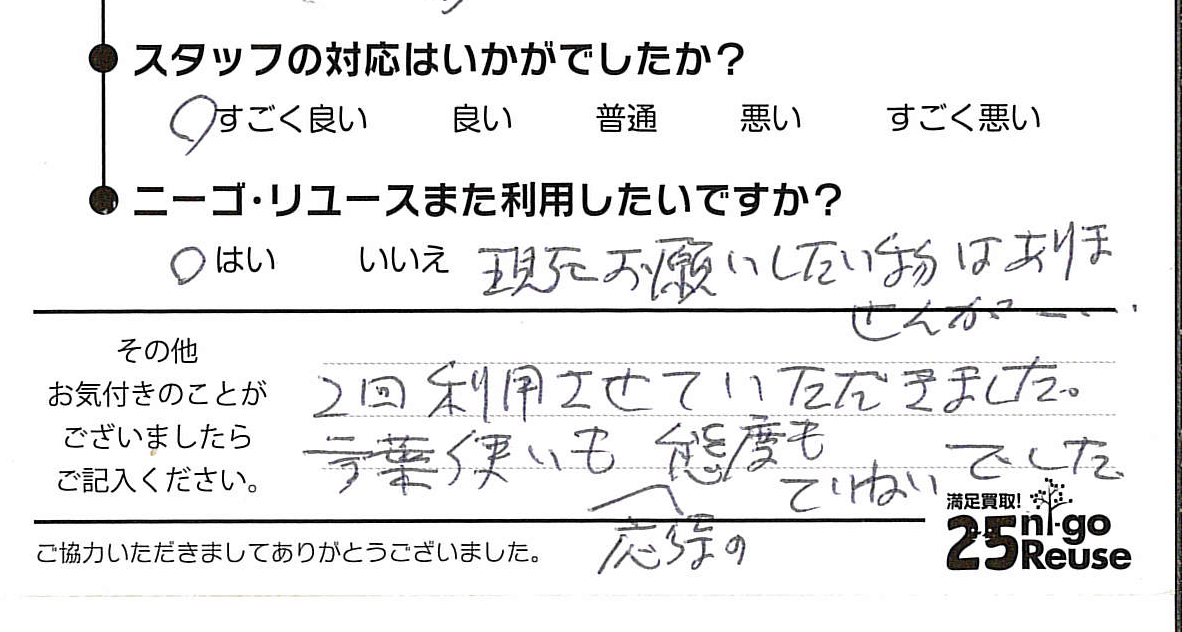 スタッフの対応はいかがでしたか?
すごく良い 良い 普通 悪い すごく悪い
ニーゴ・リユースまた利用したいですか?
はい いいえ 現在お願いしたい物はありま
せんが…
その他
お気付きのことが
ございましたら
ご記入ください。
2回利用させていただきました。
言葉使いも 態度も
ていねい でした
応待の
ご協力いただきましてありがとうございました。
満足買取!
25 ni-go
Reuse